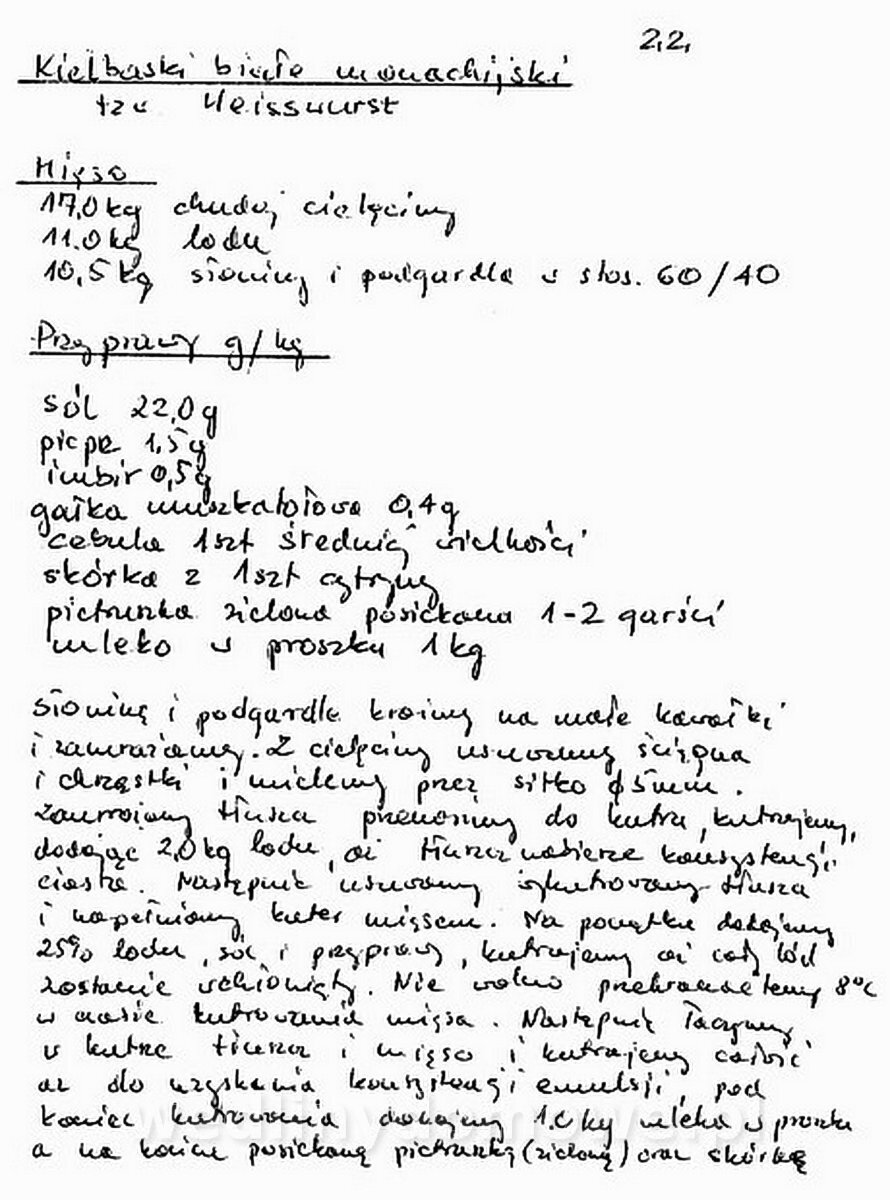 2.2.
Kiełbaski białe monachijski
tzw Weisswurst
Mięso
17,0 kg chudej cielęciny
11.0 kg lodu
10,5 kg słoniny i podgardla w stos. 60/40
Przyprawy g/kg
sól 22,0g
pieprz 1,5g
imbir 0,5g
gałka muszkatołowa 0,4g
cebula 1szt średniej wielkości
skórka z 1szt cytryny
pietruszka zielona posiekana 1-2 garści
mleko w proszku 1kg
słoninę i podgardle kroimy na małe kawałki
i zamrażamy. Z cielęciny usuwamy ścięgna
i chrząstki i mielemy przez sitko ϕ5mm.
Zamrożony tłuszcz przenosimy do kutra, kutrujemy,
dodając 2,0 kg lodu, aż tłuszcz nabierze konsystencji
ciasta. Następnie usuwamy wykutrowany tłuszcz
i napełniamy kuter mięsem. Na początku dodajemy
25% lodu, sól i przyprawy, kutrujemy aż cały lód
zostanie wchłonięty. Nie wolno przekraczać temp 8°C
w czasie kutrowania mięsa. Następnie łączymy
w kutrze tłuszcz i mięso i kutrujemy całość
aż do uzyskania konsystencji emulsji, pod
koniec kutrowania dodajemy 1.0 kg mleka w proszku
a na końcu posiekaną pietruszkę (zieloną) oraz skórkę
wedlinydomowe.pl